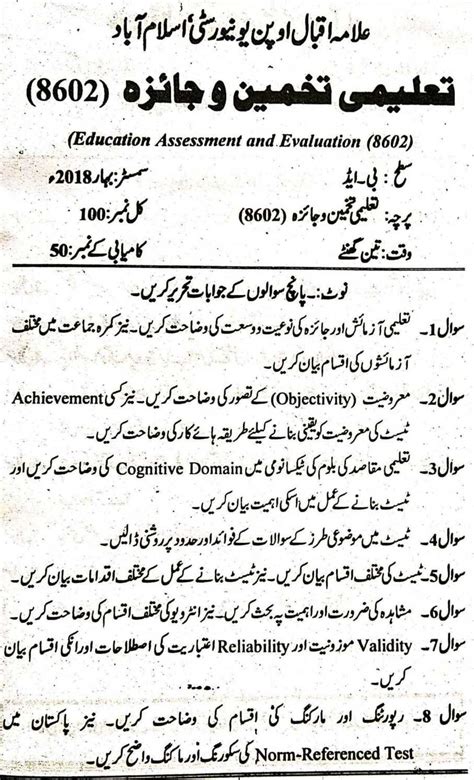 علامہ اقبال اوپن یونیورسٹی، اسلام آباد
تعلیمی تخمین و جائزہ (8602)
(Education Assessment and Evaluation (8602)
سطح: بی۔ایڈ سمسٹر: بہار 2018ء
پرچہ: تعلیمی تخمین و جائزہ (8602) کل نمبر: 100
وقت: تین گھنٹے کامیابی کے نمبر: 50
نوٹ:۔ پانچ سوالوں کے جوابات تحریر کریں۔
سوال 1۔ تعلیمی آزمائش اور جائزہ کی نوعیت و وسعت کی وضاحت کریں۔ نیز کمرہ جماعت میں مختلف
آزمائشوں کی اقسام بیان کریں۔
سوال 2۔ معروضیت (Objectivity) کے تصور کی وضاحت کریں۔ نیز کسی Achievement
ٹیسٹ کی معروضیت کو یقینی بنانے کیلئے طریقہ ہائے کار کی وضاحت کریں۔
سوال 3۔ تعلیمی مقاصد کی بلوم کی ٹیکسانومی میں Cognitive Domain کی وضاحت کریں اور
ٹیسٹ بنانے کے عمل میں اسکی اہمیت بیان کریں۔
سوال 4۔ ٹیسٹ میں موضوعی طرز کے سوالات کے فوائد اور حدود پر روشنی ڈالیں۔
سوال 5۔ ٹیسٹ کی مختلف اقسام بیان کریں۔ نیز ٹیسٹ بنانے کے عمل کے مختلف اقدامات بیان کریں۔
سوال 6۔ مشاہدہ کی ضرورت اور اہمیت پہ بحث کریں۔ نیز انٹرویو کی مختلف اقسام کی وضاحت کریں۔
سوال 7۔ Validity موزونیت اور Reliability اعتباریت کی اصطلاحات اور انکی اقسام بیان
کریں۔
سوال 8۔ رپورٹنگ اور مارکنگ کی اقسام کی وضاحت کریں۔ نیز پاکستان میں
Norm-Referenced Test کی سکورنگ اور مارکنگ واضح کریں۔